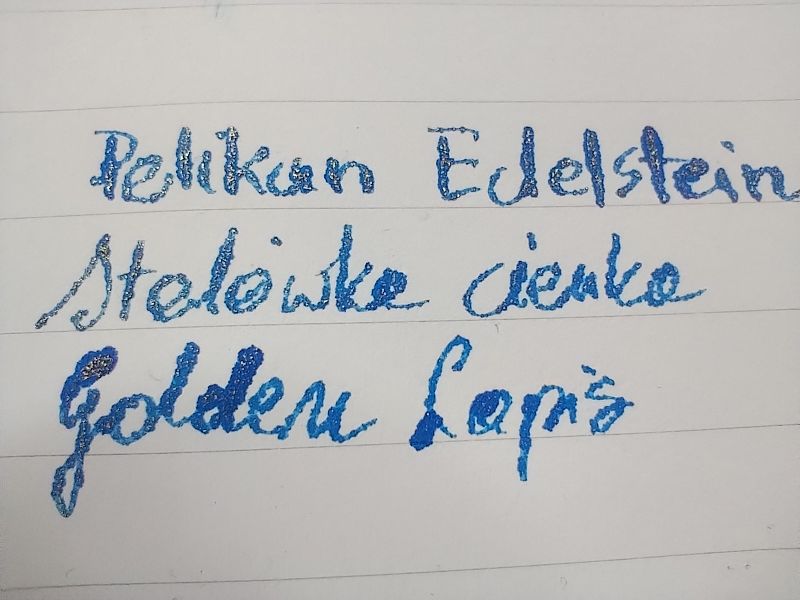 Pelikan Edelstein
Stalówka cienka
Golden Lapis